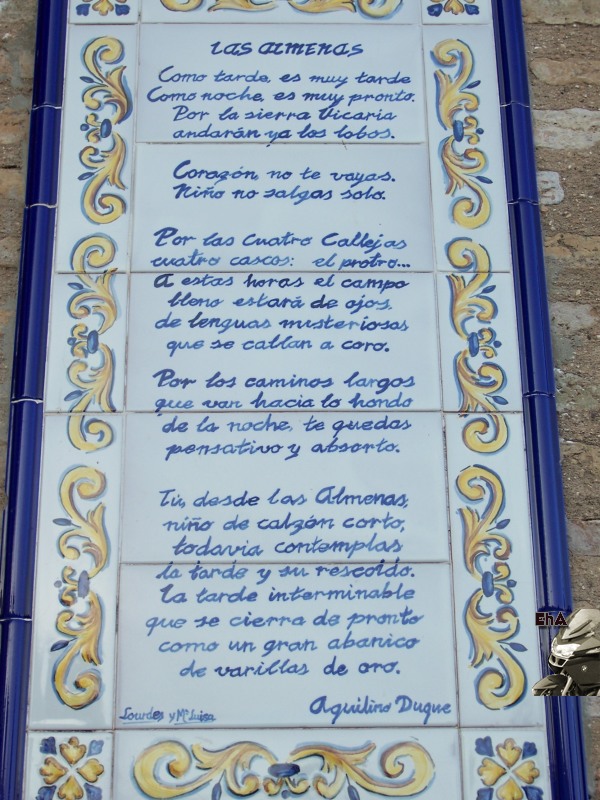 LAS ALMENAS
Como tarde, es muy tarde
Como noche, es muy pronto.
Por la sierra Vicaria
andarán ya los lobos.
Corazón, no te vayas.
Niño no salgas solo.
Por las Cuatro Callejas
cuatro cascos: el protro...
A estas horas el campo
lleno estará de ojos,
de lenguas misteriosas
que se callan a coro.
Por los caminos largos
que van hacia lo hondo
de la noche, te quedas
pensativo y absorto.
Tú, desde las Almenas,
niño de calzón corto,
todavía contemplas
la tarde y su rescoldo.
La tarde interminable
que se cierra de pronto
como un gran abanico
de varillas de oro.
Aquilino Duque
Lourdes y Mª Luisa
EhA